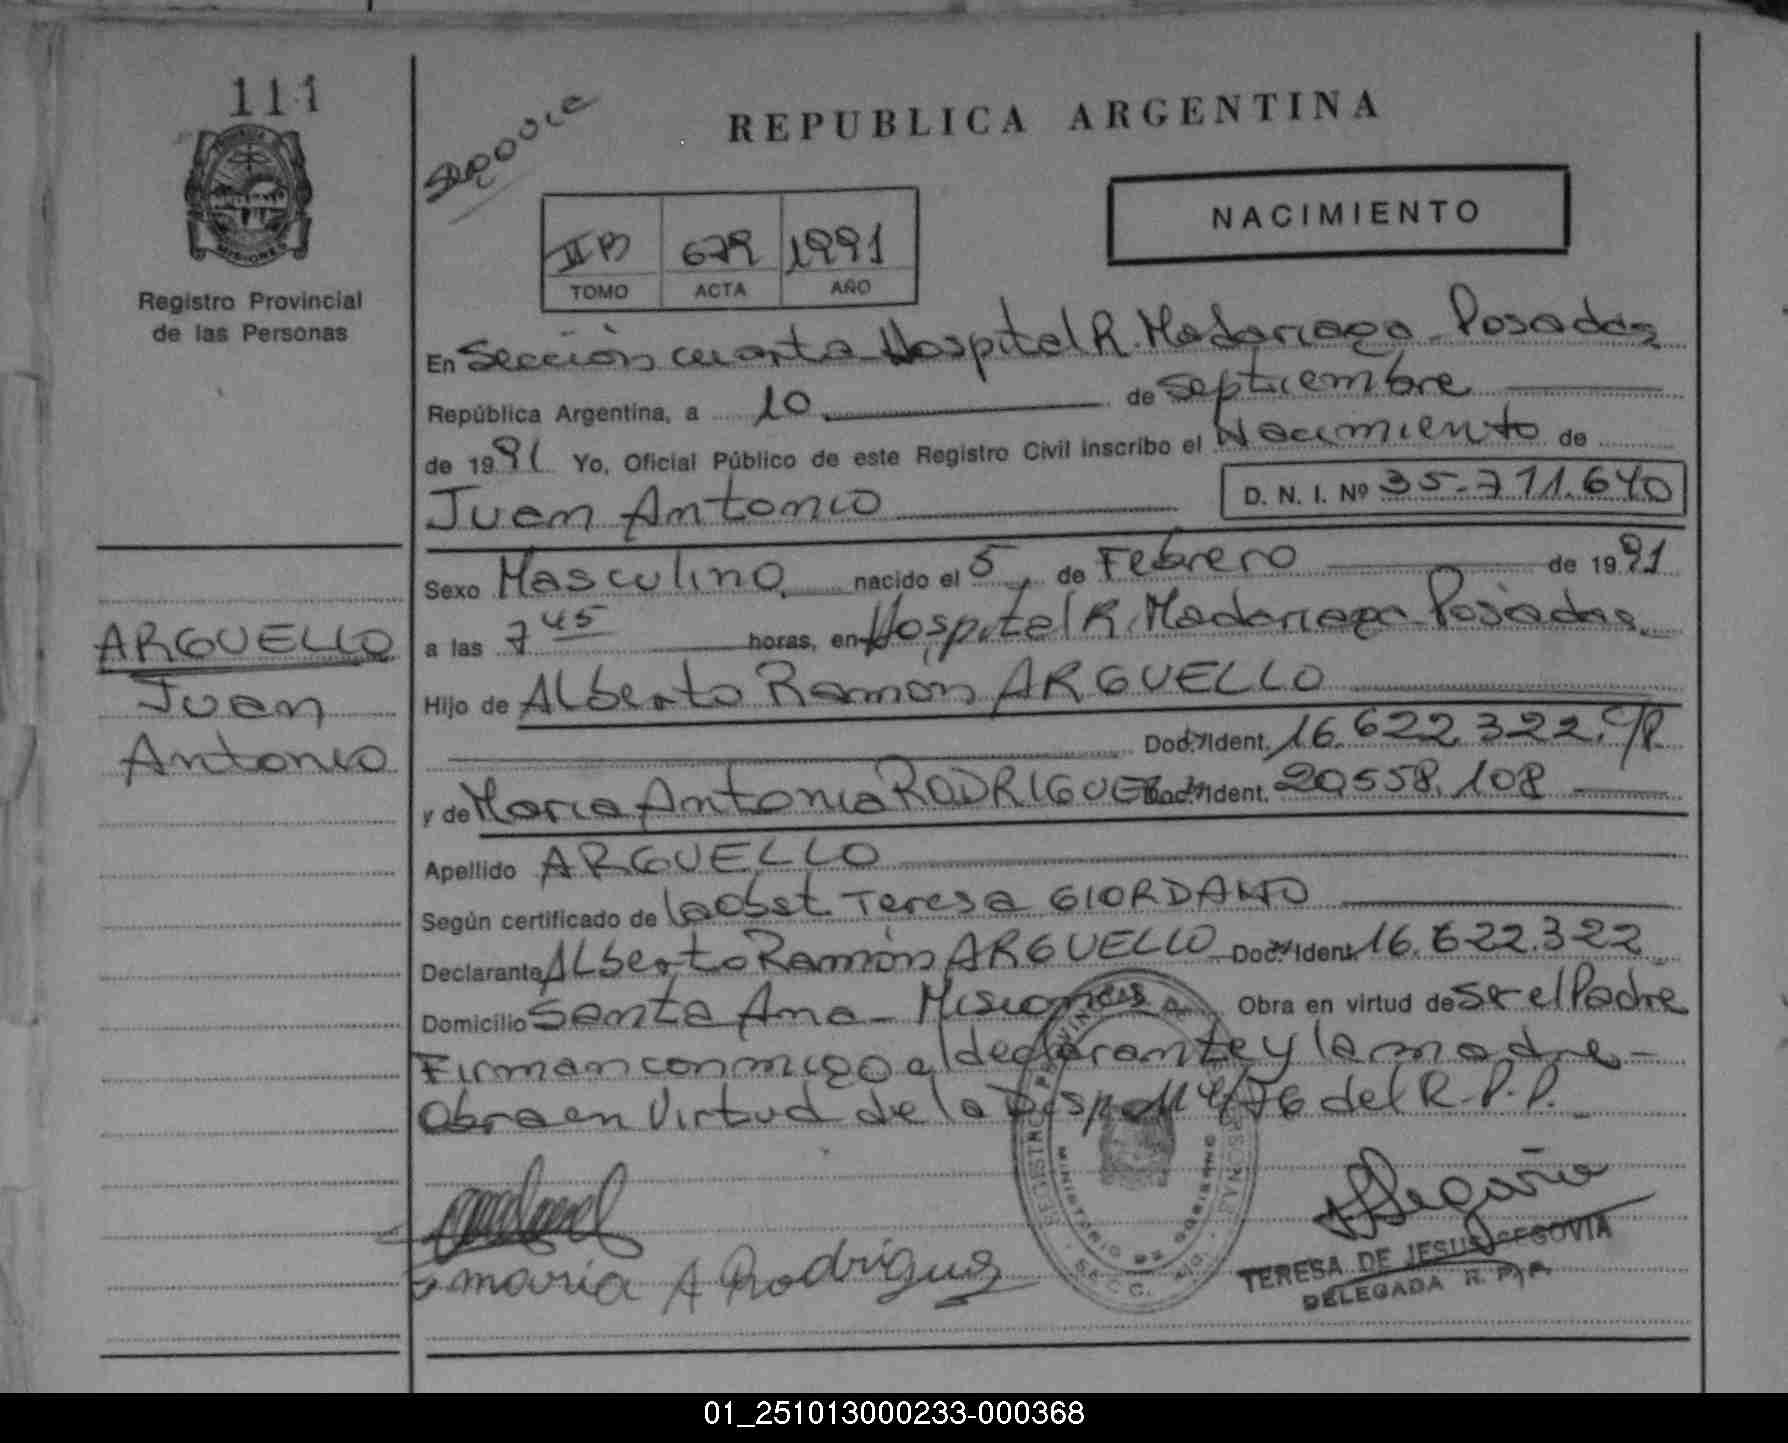 111
REPUBLICA ARGENTINA
NACIMIENTO
II B 679 1991
TOMO ACTA AÑO
Registro Provincial
de las Personas
En Sección cuarta Hospital R. Madariaga - Posadas
República Argentina, a 10 de Septiembre
de 1991 Yo, Oficial Público de este Registro Civil inscribo el Nacimiento de
Juan Antonio D. N. I. Nº 35.711.640
Sexo Masculino nacido el 5, de Febrero de 1991
a las 7 45 horas, en Hospital R. Madariaga - Posadas
ARGUELLO
Juan
Antonio
Hijo de Alberto Ramón ARGUELLO
Doc. Ident. 16.622.322. C/P.
y de Maria Antonia RODRIGUEZ Doc. Ident. 20558.108
Apellido ARGUELLO
Según certificado de la Obst. Teresa GIORDANO
Declarante Alberto Ramón ARGUELLO Doc. Ident. 16.622.322
Domicilio Santa Ana - Misiones Obra en virtud de Ser el Padre
Firman conmigo el declarante y la madre -
Obra en Virtud de la Disp. 4/76 del R.P.P.
REGISTRO PROVINCIAL DE LAS PERSONAS
MINISTERIO DE GOBIERNO
SECC.
maria A Rodriguez
TERESA DE JESUS SEGOVIA
DELEGADA R. P. P.
01_251013000233-000368